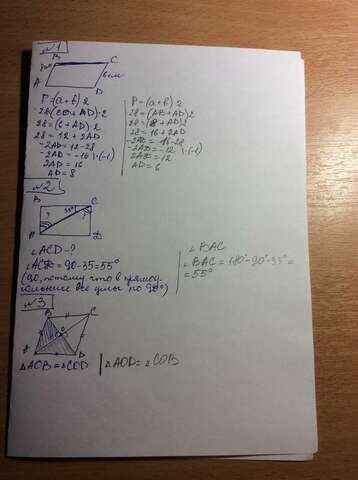 №1
B C
8см 6см
A D
P=(a+b)·2
28=(CD+AD)·2
28=(6+AD)·2
28=12+2AD
-2AD=12-28
-2AD=-16 |·(-1)
2AD=16
AD=8
P=(a+b)·2
28=(AB+AD)2
28=(8+AD)2
28=16+2AD
-2AD=16-28
-2AD=-12 |·(-1)
2AD=12
AD=6
№2
B C
? 35° ?
A D
∠ACD-?
∠ACD=90-35=55°
(90, потому что в прямоу-
гольнике все углы по 90°)
∠BAC
∠BAC=180°-90°-35°=
=55°
№3
B C
O
A D
△AOB=△COD
△AOD=△COB